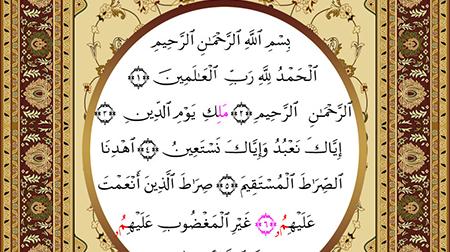 بِسْمِ اللَّهِ الرَّحْمَٰنِ الرَّحِيمِ
الْحَمْدُ لِلَّهِ رَبِّ الْعَٰلَمِينَ ﴿١﴾
الرَّحْمَٰنِ الرَّحِيمِ ﴿٢﴾ مَلِكِ يَوْمِ الدِّينِ ﴿٣﴾
إِيَّاكَ نَعْبُدُ وَإِيَّاكَ نَسْتَعِينُ ﴿٤﴾ اهْدِنَا
الصِّرَاطَ الْمُسْتَقِيمَ ﴿٥﴾ صِرَاطَ الَّذِينَ أَنْعَمْتَ
عَلَيْهِمُۥ ﴿٦﴾ غَيْرِ الْمَغْضُوبِ عَلَيْهِمُۥ